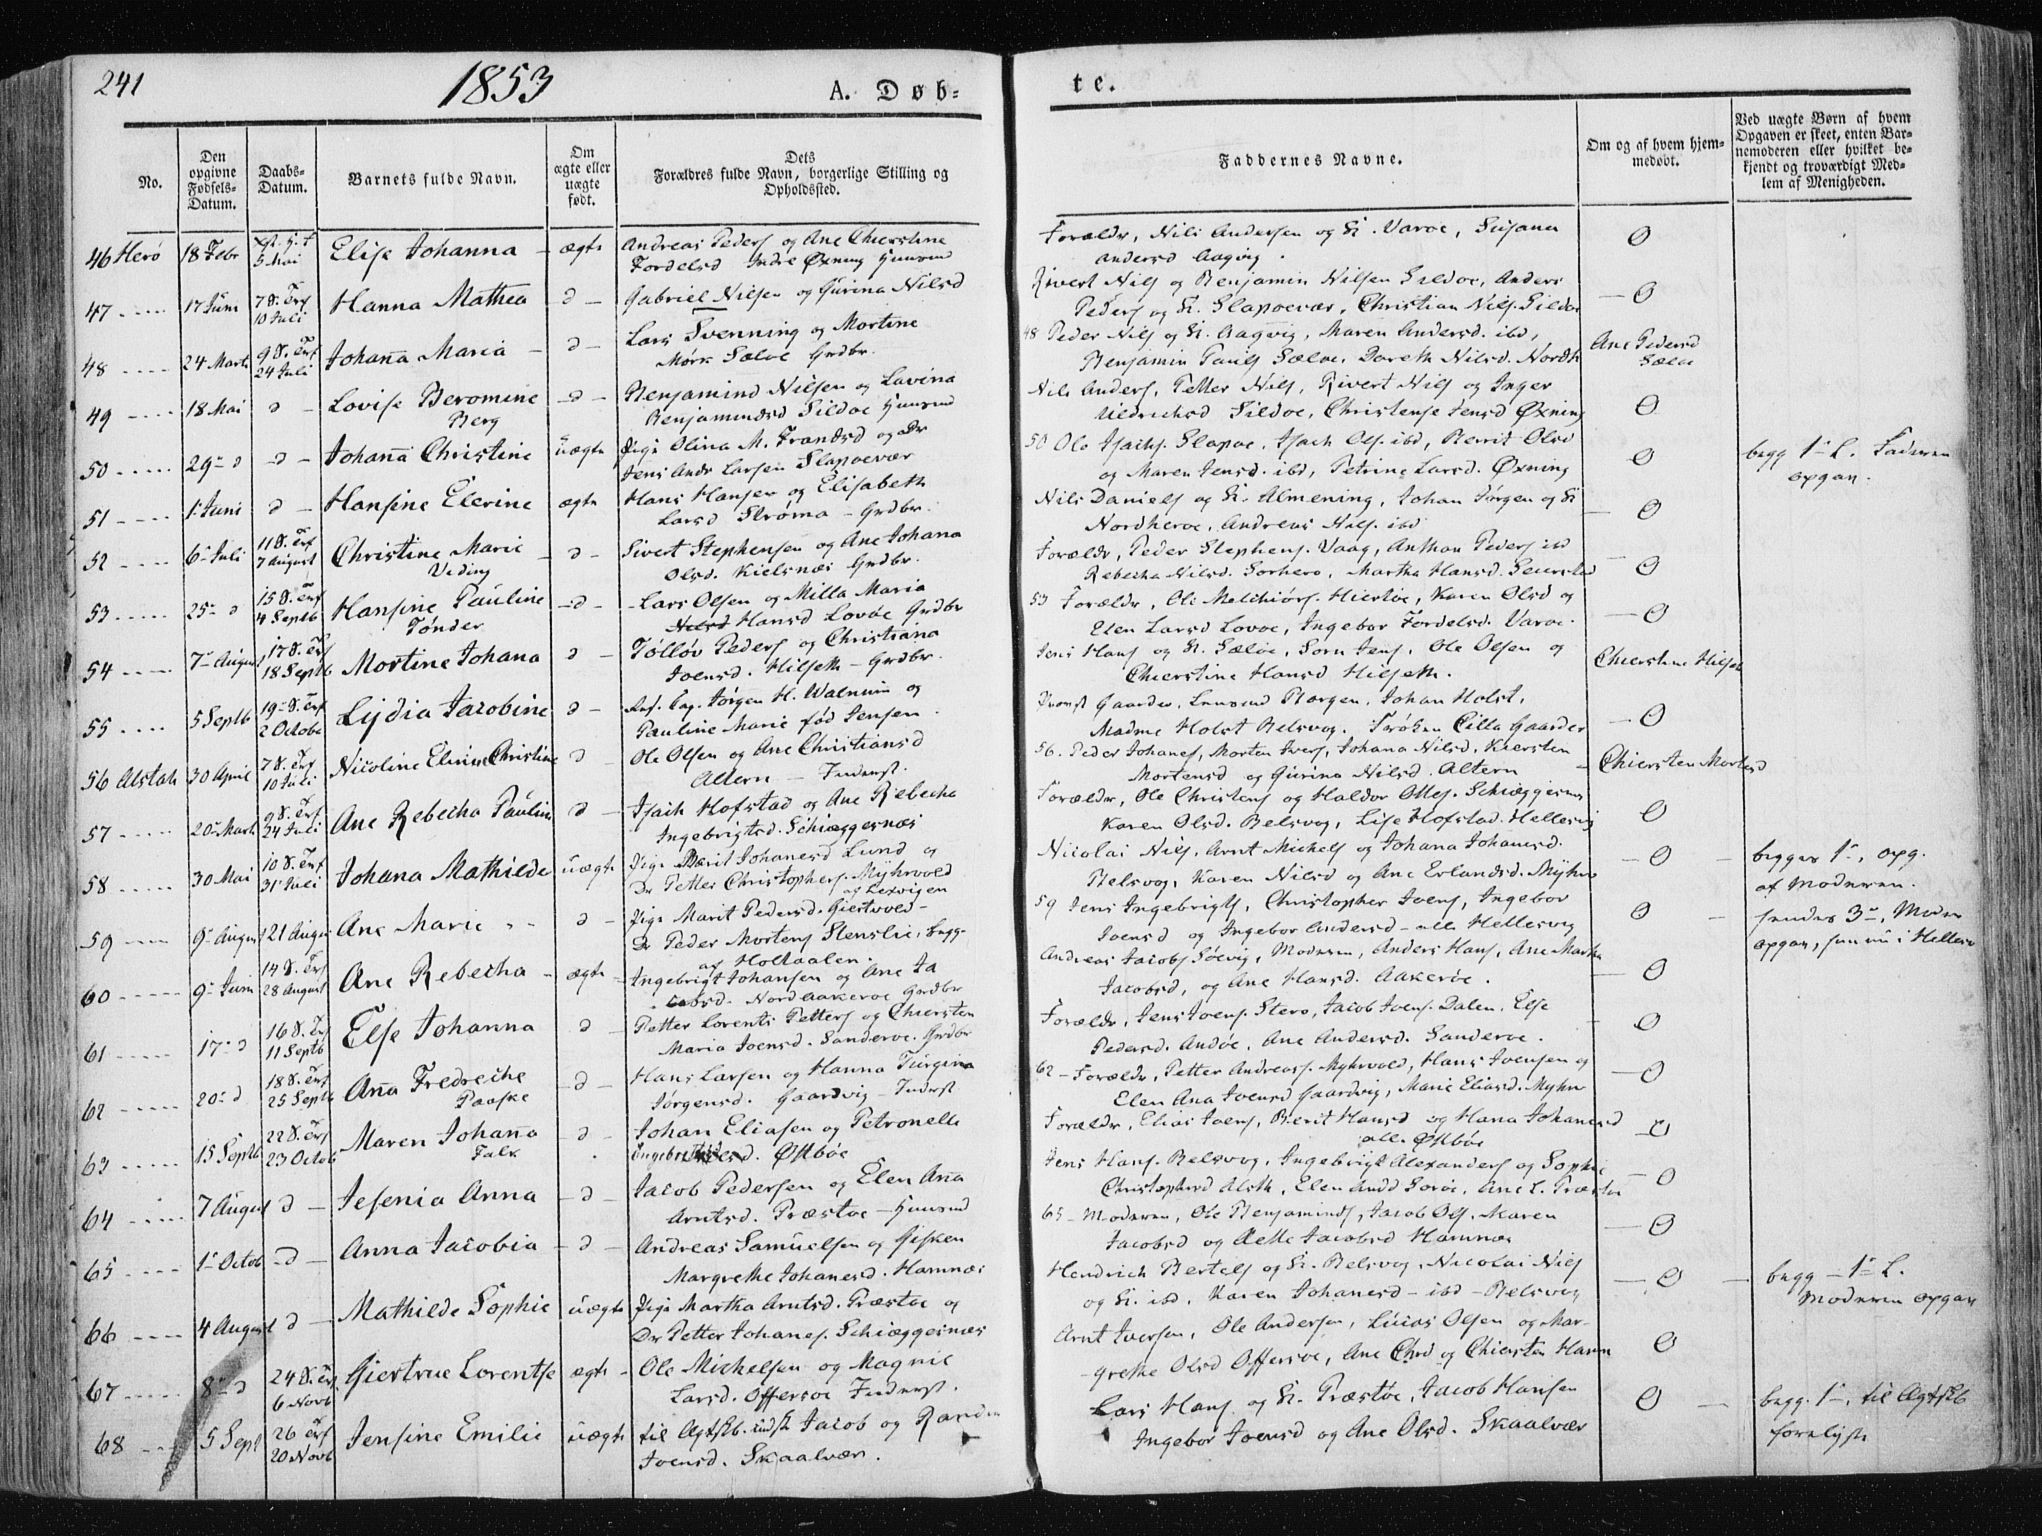 241
1853
A. Døb-
te.
No.
Den opgivne Fødsels-Datum.
Daabs-Datum.
Barnets fulde Navn.
Om ægte eller uægte født.
Dets
Forældres fulde Navn, borgerlige Stilling og
Opholdssted.
Faddernes Navne.
Om og af hvem hjem-
medøbt.
Ved uægte Børn af hvem
Opgaven er skeet, enten Bar-
nemoderen eller hvilket be-
kjendt og troværdigt Med-
lem af Menigheden.
46 Herø 18 Febr 5 Mai Elise Johanna - ægte Andreas Peders og Ane Chierstine
Fordelsd Indre Øxning Huusmd
Forældr, Nils Andersen og K. Varoe, Susana
Andersd Aagvig. 0
47 17 Juni 7 S. Trf 10 Juli Hanna Mathea d - Gabriel Nilsen og Gurina Nilsd
Rivert Nils og Benjamin Nilsen Sildoe, Anders
Peders og K. Slapoevær, Christian Nils. Sildoe 0
48 24 Marts 9 S. Trf 24 Juli Johana Maria - d - Lars Svenning og Mortine
Mørk Sæloe Grdbr.
48 Peder Nils og K. Aagvig, Maren Andersd. ibd,
Benjamin Pauls Sæloe, Doreth Nilsd. Nordh
Ane Pedersd
Sæloe
49 18 Mai d - Lovise Beromine
Berg - d - Benjamind Nilsen og Lavina
Benjaminsd Sildoe Huusmd
Nils Anders, Petter Nils, Rivert Nils og Inger
Uldrichsd Sildoe, Christense Jensd Øxning 0
50 29 d - d - Johana Christine uægte Pige Olina M. Frandsd og Dr
Jens Andr Larsen Slapoevær
50 Ole Isachs. Slapoe, Isach Ols. ibd, Berit Olsd
og Maren Jensd. ibd, Petrine Larsd. Øxning 0
begg 1 L. Faderen
opgav.
51 1 Juni d - Hansine Elevine ægte Hans Hansen og Elisabeth
Larsd Strøma - Grdbr.
Nils Daniels og K. Almening, Johan Jørgen og K
Nordheroe, Andreas Nils. ibd 0
52 6 Juli 11 S. Trf 7 August Christine Marie
Veding - d - Sivert Stephensen og Ane Johana
Olsd. Kielsnæs Grdbr.
Forældr, Peder Stephens. Vaag, Anthon Peders ibd
Rebecha Nilsd. Sorhero, Martha Hansd. 0
53 25 d 15 S. Trf 4 Septb Hansine Pauline
Tønder - d - Lars Olsen og Milla Maria
Hansd Lovoe Grdbr
53 Forældr, Ole Melchiørs. Hiertøe, Karen Olsd og
Elen Larsd Lovoe, Ingebor Fordelsd. Varoe. 0
54 7 August 17 S. Trf 18 Septb Mortine Johana d - Tølløv Peders og Christiana
Joensd. Hilseth - Grdbr.
Jens Hans og K. Sæløe, Sorn Jens, Ole Olsen og
Chierstine Hansd Hilseth.
Chierstine Hilseth
55 5 Septb 19 S. Trf 2 Octobr Lydia Jacobine d - Jørgen H. Walnum og
Pauline Marie fød Jensen.
Provst Gaarder, Borgen, Johan Holst,
Madme Holst Belsvog. Frøken Cilla Gaarder 0
56 Alstah 30 April 7 S. Trf 10 Juli Nicoline Christine d - Ole Olsen og Ane Christiansd
Altern - Inderst.
56. Peder Johanes, Morten Ivers, Johana Nilsd, Kiersten
Mortensd og Gurina Nilsd. Altern
Chiersten Mortsd
57 20 Marts 9 S. Trf 24 Juli Ane Rebecha Pauline d - Isach Hofstad og Ane Rebecha
Ingebrigtsd. Schiæggesnæs
Forældr, Ole Christens og Haldor Olles. Schiæggesnæs
Karen Olsd. Belsvog, Lise Hofstad. Hellesvig 0
58 30 Mai 10 S. Trf 31 Juli Johana Mathilde uægte Pige Berit Johanesd Lund og
Dr Petter Christophers. Myhrvold
af Lexvigen
Nicolai Nils, Arnt Michels og Johana Johanesd.
Belsvog, Karen Nilsd og Ane Erlandsd. Myhr 0
begges 1, opg.
af Moderen.
59 9 August 21 August Ane Marie d - Pige Marit Pedersd. Giertvold -
Dr Peder Mortens Stenslie, begg
af Holtaalen.
59 Jens Ingebrigts, Christopher Joens, Ingebor
Joensd og Ingebor Andersd - alle Hellesvig 0
hendes 3, Moder
opgav, hun nu i Hellesv
60 9 Juni 14 S. Trf 28 August Ane Rebecha - ægte - Ingebrigt Johansen og Ane Ja
cobsd. Nordaakeroe Grdbr
Andreas Jacobs Søevig, Moderen, Anders Hans, Ane Martha
Jacobsd, og Ane Hansd. Aakerøe. 0
61 17 d 16 S. Trf 11 Septb Else Johanna d - Petter Lorents Petters og Chiersten
Maria Joensd. Sanderoe. Grdbr
Forældr, Jens Joens. Stero, Jacob Joens. Dalen, Else
Pedersd. Andøe, Ane Andersd. Sanderoe. 0
62 20 d 18 S. Trf 25 Septb Ana Fredreche
Paaske - d - Hans Larsen og Hanna Jurgina
Jørgensd. Gaardvig - Inderst
62 - Forældr, Petter Andreass. Myhrvold, Hans Joensen og
Elen Ana Joensd Gaardvig, Marie Eliasd. Myhr 0
63 15 Septb 22 S. Trf 23 Octob Maren Johana
Falk - d - Johan Eliasen og Petronelle
Østbøe
Forældr, Elias Joens, Berit Hansd og Hana Johanesd
alle Østbøe 0
64 7 August d - Jesenia Anna - d - Jacob Pedersen og Elen Ana
Arntsd. Præstøe - Huusmd
Jens Hans. Belsvog, Ingebrigt Alexanders og Sophie
Christophersd Alsth, Elen Andd Soroe, Ane L. Præstøe 0
65 1 Octob - d - Anna Jacobia - d - Andreas Samuelsen og Gisken
Margrethe Johanesd. Hamnæs
65 - Moderen, Ole Benjamins, Jacob Ols, Maren
Jacobsd og Aette Jacobsd Hamnæs 0
66 4 August d - Mathilde Sophie uægte Pige Martha Arntsd. Præstøe og
Dr Petter Johanes. Schiæggesnæs
Hendrich Bertels og K. Belsvog, Nicolai Nils
og K. ibd, Karen Johanesd - ibd - Belsvog 0
begg - 1 L.
Moderen opgav
67 8 d 24 S. Trf 6 Novb Giertrue Lorentse ægte - Ole Michelsen og Magnil
Larsd. Offersøe Inderst.
Arnt Iversen, Ole Andersen, Lucas Olsen og Mar-
grethe Olsd Offersøe, Ane Chrd og Chiersten Hamn 0
68 5 Sept 26 Trf 20 Novb Jensine Emilie uægte til Ægtskb. indst Jacob og Randi
Joensd. Skaalvær.
Lars Hans og K. Præstøe, Jacob Hansen
Ingebor Joensd og Ane Olsd. Skaalvær 0
begg. 1, til Ægtskb
forelyste